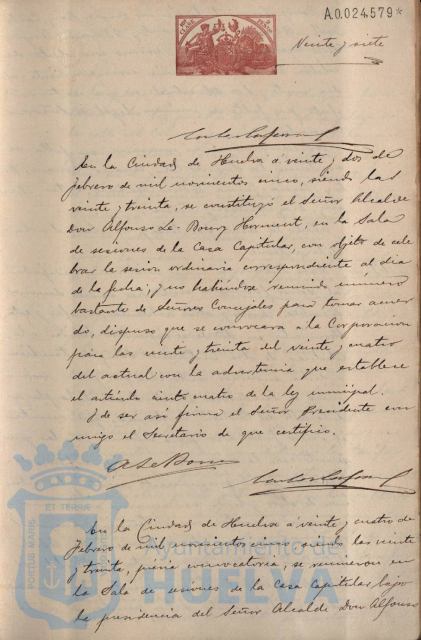 A.0.024,579*
Veinte y siete
En la Ciudad de Huelva á veinte y dos de
febrero de mil novecientos cinco, siendo las
veinte y treinta, se constituyó el Señor Alcalde
Don Alfonso Le-Bourg Horment, en la Sala
de sesiones de la Casa Capitular, con objeto de cele
brar la sesion ordinaria correspondiente al dia
de la fecha; y no habiéndose reunido número
bastante de Señores Concejales para tomar acuer
do, dispuso que se convocara a la Corporacion
para las veinte y treinta del veinte y cuatro
del actual con la advertencia que establece
el artículo ciento cuatro de la ley municipal.
Y de ser así firma el Señor Presidente con
migo el Secretario de que certifico.
En la Ciudad de Huelva á veinte y cuatro de
Febrero de mil novecientos cinco, siendo las veinte
y treinta, previa convocatoria, se reunieron en
la Sala de sesiones de la Casa Capitular, bajo
la presidencia del Señor Alcalde Don Alfonso
PORTUS MARIS
ET TERRAE
CUSTODIA
Ayuntamiento de
HUELVA